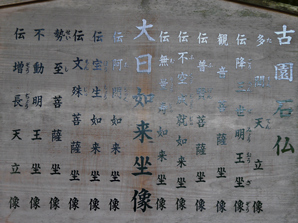 古園石仏
多聞天立像
伝降三世明王坐像
観音菩薩立像
伝普賢菩薩坐像
伝不空成就如来坐像
伝無量寿如来坐像
大日如来坐像
伝阿閦如来坐像
伝宝生如来坐像
伝文殊菩薩坐像
勢至菩薩坐像
不動明王坐像
伝増長天立像